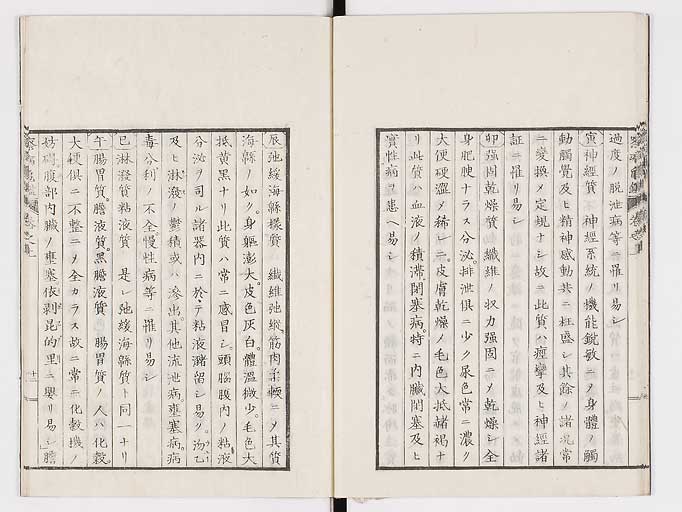 過度ノ脱泄病等ニ罹リ易シ
寅神經質 神經系統ノ機能銳敏ニメ身體ノ觸
動觸覺及ヒ精神感動共ニ旺盛シ其餘ノ諸況常
ニ變換メ定規ナシ故ニ此質ハ痙攣及ヒ神經諸
証ニ罹リ易シ
卯强固乾燥質 纖維ノ収力强固ニメ乾燥シ全
身肥腴ナラス分泌排泄俱ニ少ク尿色常ニ濃ク
大便硬澀メ稀シニ皮膚乾燥ノ毛色大抵諸褐ナ
リ此質ハ血液ノ積滯閉塞病特ニ内臟閉塞及ヒ
實性病ヲ患ヘ易シ
辰弛緩海縣樣質 纖維弛縱筋肉柔輭ニメ其質
海縣ノ如ク身軀膨大皮色灰白體溫微少毛色大
抵黄黑ナリ此質ハ常ニ感冒シ頭腦腹内ノ粘液
分泌ヲ司ル諸器内ニ於テ粘液瀦留シ易ク汤乙
及ヒ淋潑ノ鬱積或ハ滲出其他流泄病壅塞病病
毒分利ノ不全慢性病等ニ罹リ易シ
巳淋潑質粘液質 是レ弛緩海縣質ト同一ナリ
午腸胃質膽液質黑膽液質 腸胃質ノ人ハ化穀
大便俱ニ不整ニメ全カラス故ニ常ニ化穀機ノ
妨碍腹部内臟ノ壅塞依剥昆的里ニ患リ易シ膽
十三